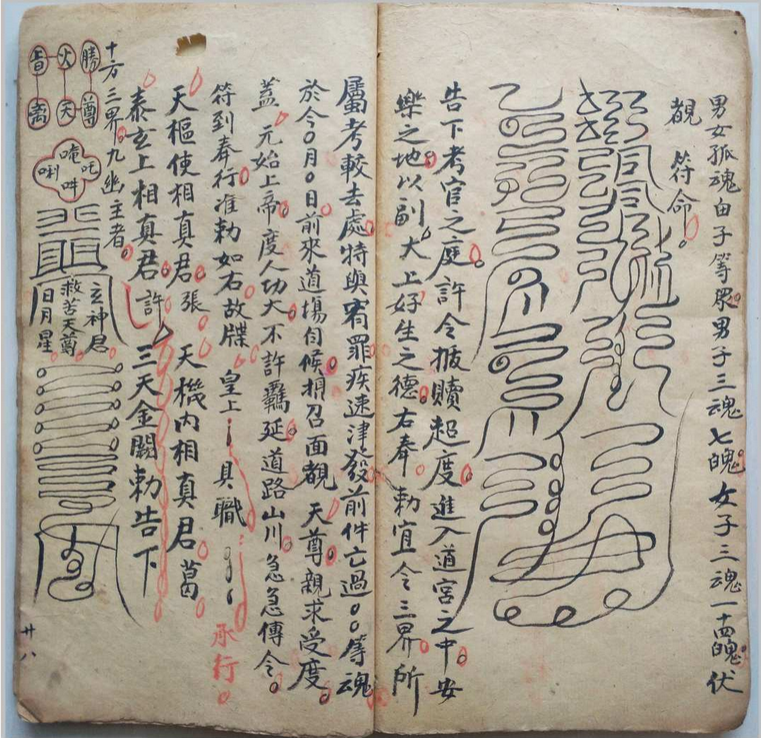 男女孤魂白子等眾男子三魂七魄女子三魂一十四魄伏
覩　符命
告下考官之庭許令披贖超度進入道宮之中安
樂之地以副　大上好生之德右奉　勅宜令三界所
屬考較去處特與宥罪疾速津發前件亡過○○等魂
於今○月○日前來道塲伺候招召面覩　天尊親求受度
蓋　元始上帝度人功大不許羈延道路山川急急傳令
符到奉行准勅如右故牒　皇上　具職　承行
天樞使相真君張　天機內相真君葛
泰玄上相真君許　三天金闕勅告下
十方三界九幽主者
勝　火　音
尊　天　离
唵吒唎吽
玄神君
救苦天尊
日月星
廿八